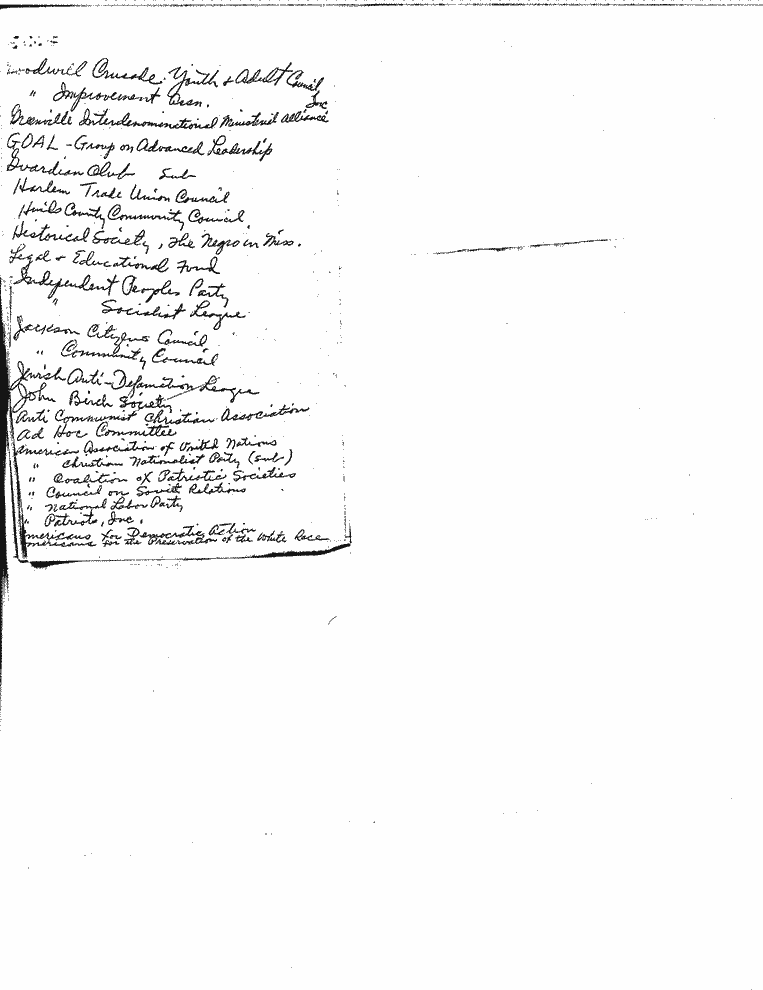 Goodwill Crusade. Youth & Adult Council, Inc
" Improvement Assn.
Greenville Interdenominational Ministerial Alliance
GOAL - Group on Advanced Leadership
Guardian Club Sub
Harlem Trade Union Council
Hinds County Community Council
Historical Society, The Negro in Miss.
Legal & Educational Fund
Independent Peoples Party
" Socialist League
Jackson Citizens Council
" Community Council
Jewish Anti-Defamation League
John Birch Society
Anti Communist Christian Association
Ad Hoc Committee
American Association of United Nations
" Christian Nationalist Party (sub)
" Coalition of Patriotic Societies
" Council on Soviet Relations
" National Labor Party
" Patriots, Inc.
Americans for Democratic Action
Americans for the Preservation of the White Race